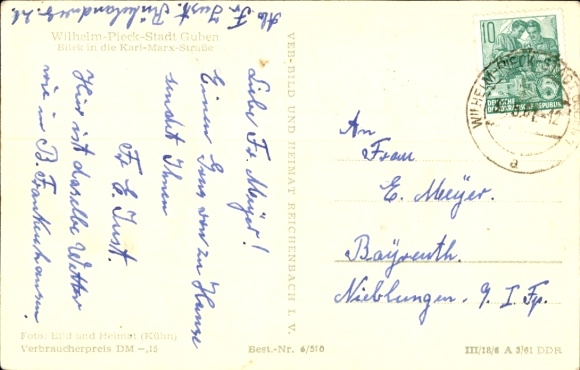 Abs. Fr. Just. 
Wilhelm-Pieck-Stadt Guben
Blick in die Karl-Marx-Straße
Liebe Fr. Meyer!
Einen Gruß von zu Hause
sendet Ihnen
Fr. E. Just.
Hier ist dasselbe Wetter
wie in B. Frankenhausen
Foto: Bild und Heimat (Kühn)
Verbraucherpreis DM -,15
VEB-BILD UND HEIMAT REICHENBACH I. V.
Best.-Nr. 6/510
10
DEUTSCHE
DEMOKRATISCHE REPUBLIK
WILHELM-PIECK-STADT
a
An
Frau
E. Meyer.
Bayreuth.
Nieblungen. 9. I
III/18/6 A 3/61 DDR